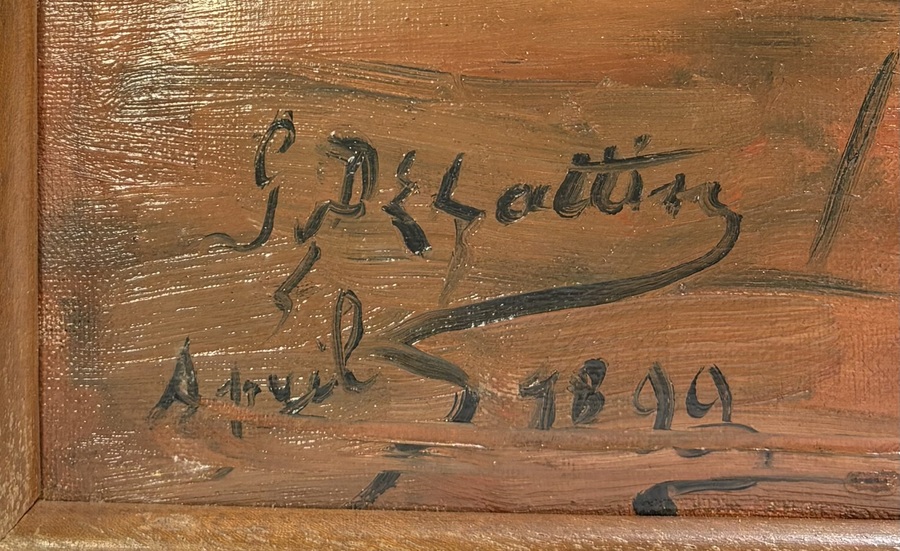 G DeLattin
April 1899